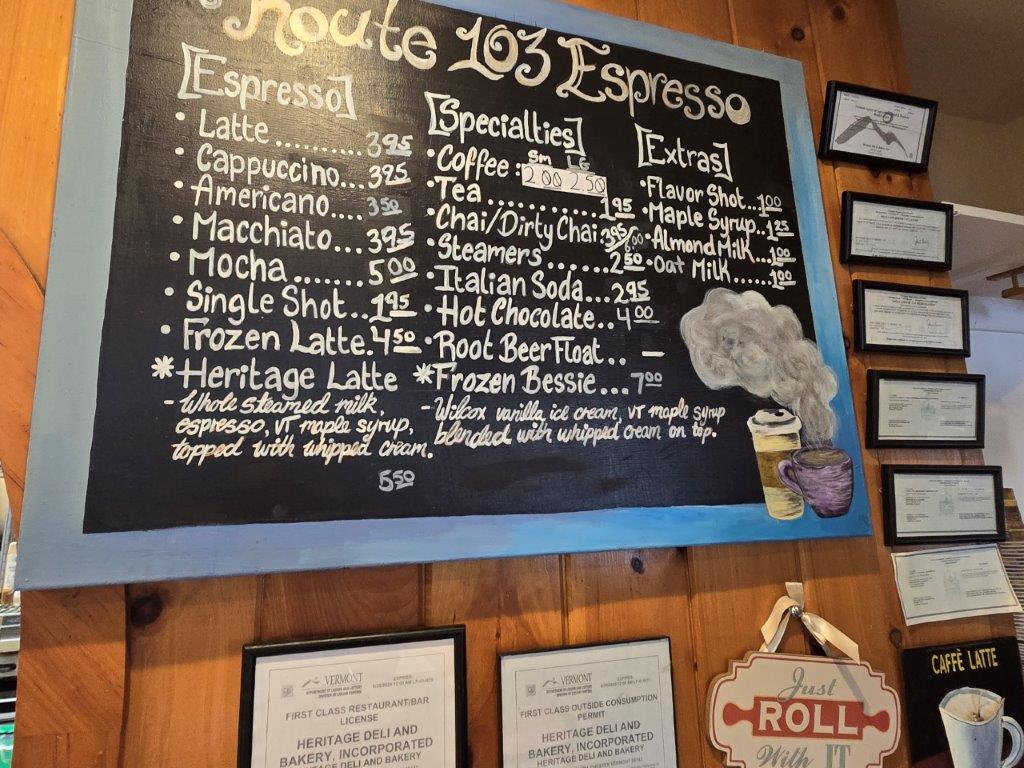 Route 103 Espresso
[Espresso]
• Latte.......... 3.95
• Cappuccino... 3.95
• Americano.... 3.50
• Macchiato... 3.95
• Mocha....... 5.00
• Single Shot.. 1.95
• Frozen Latte. 4.50
* Heritage Latte
- Whole steamed milk,
espresso, VT maple syrup,
topped with whipped cream.
5.50
[Specialties]
Sm LG
• Coffee : 2.00 2.50
• Tea ............ 1.95
• Chai/Dirty Chai: 3.95/6.00
• Steamers ....... 2.50
• Italian Soda... 2.95
• Hot Chocolate.. 4.00
• Root Beer Float.. —
* Frozen Bessie... 7.00
- Wilcox vanilla ice cream, VT maple syrup
blended with whipped cream on top.
[Extras]
• Flavor Shot... 1.00
• Maple Syrup.. 1.25
• Almond Milk... 1.00
• Oat Milk ...... 1.00
VERMONT
DEPARTMENT OF LIQUOR AND LOTTERY
DIVISION OF LIQUOR CONTROL
FIRST CLASS RESTAURANT/BAR
LICENSE
HERITAGE DELI AND
BAKERY, INCORPORATED
HERITAGE DELI AND BAKERY
VERMONT
DEPARTMENT OF LIQUOR AND LOTTERY
DIVISION OF LIQUOR CONTROL
FIRST CLASS OUTSIDE CONSUMPTION
PERMIT
HERITAGE DELI AND
BAKERY, INCORPORATED
HERITAGE DELI AND BAKERY
Just
ROLL
With IT
CAFFÈ LATTE